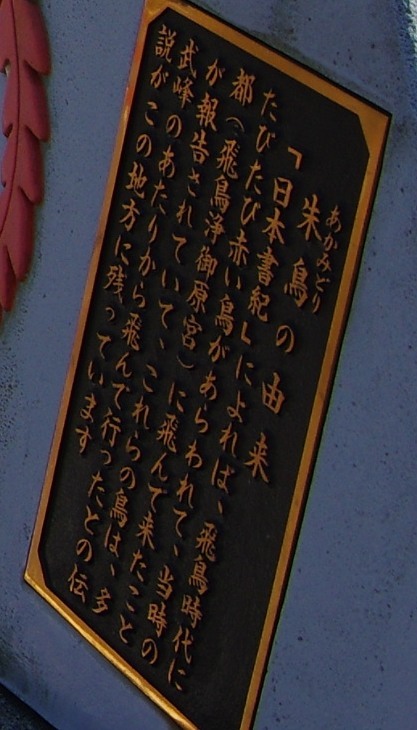 あかみどり
朱鳥の由来
「日本書紀」によれば、飛鳥時代に
たびたび赤い鳥があらわれて、当時の
都(飛鳥浄御原宮)に飛んで来たこと
が報告されていて、これらの鳥は、多
武峰のあたりから飛んで行ったとの伝
説がこの地方に残っています